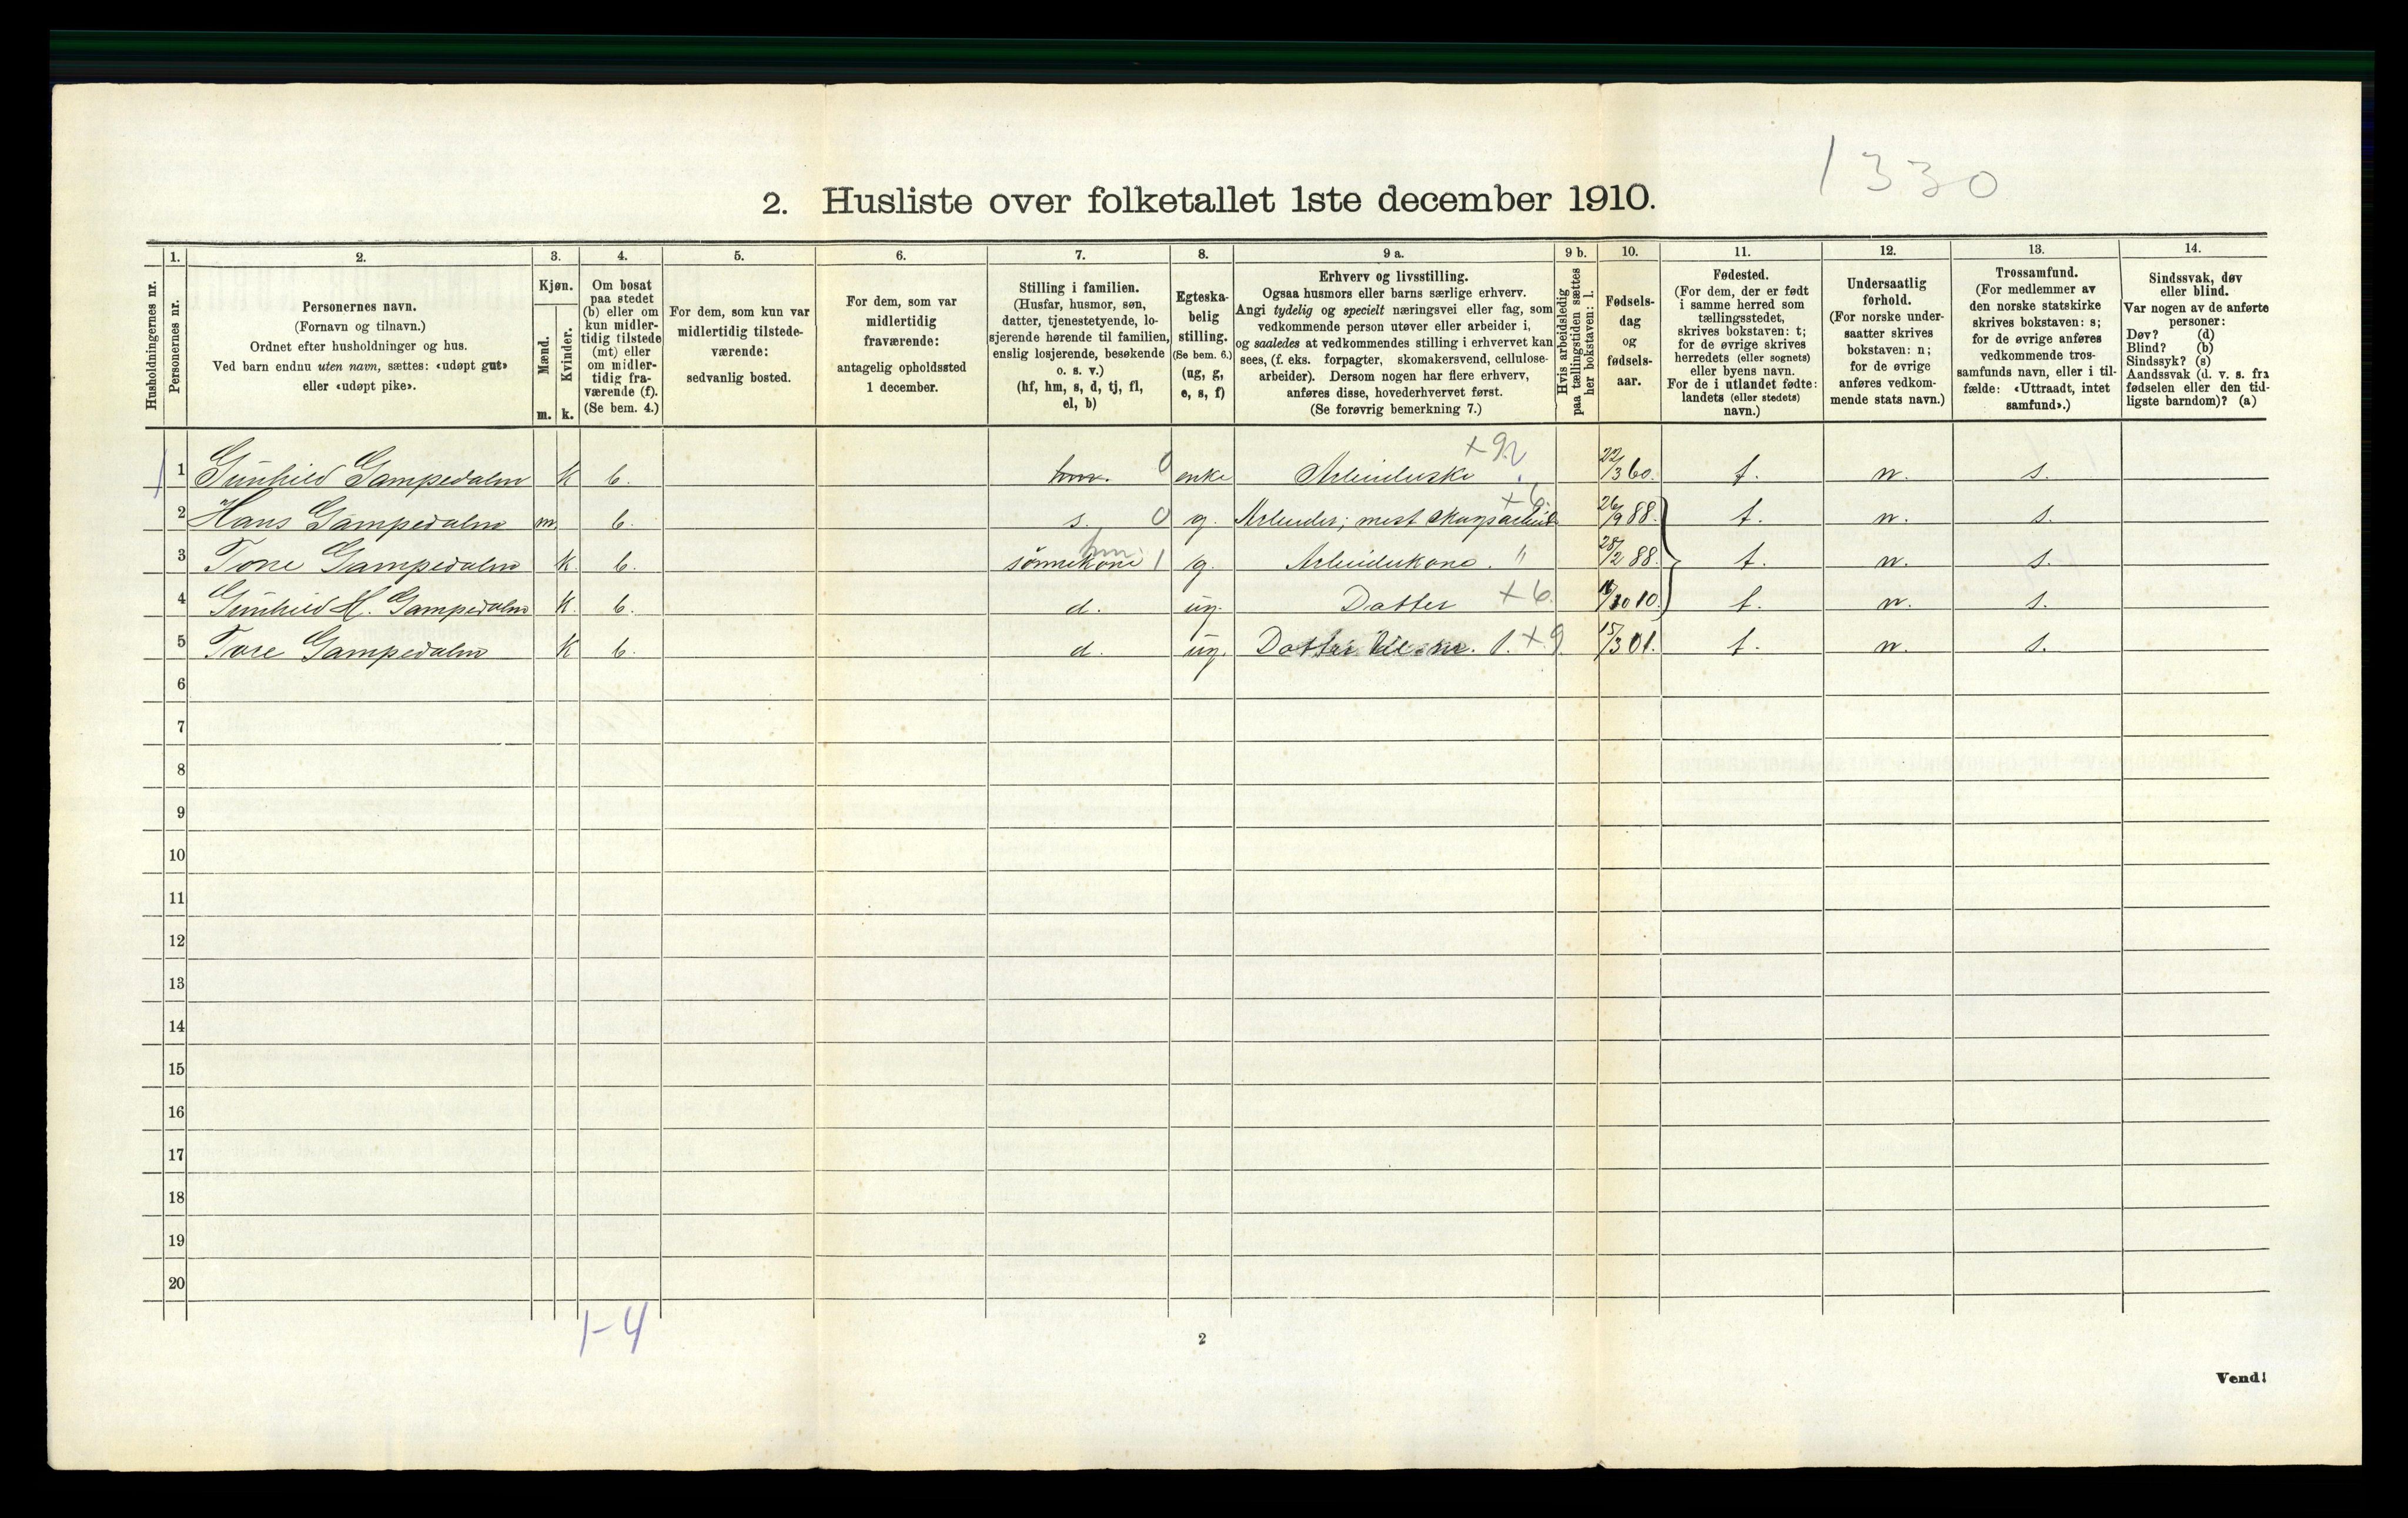 1330
2. Husliste over folketallet 1ste december 1910.
Husholdningernes nr.
1.
Personernes nr.
2.
Personernes navn.
(Fornavn og tilnavn.)
Ordnet efter husholdninger og hus.
Ved barn endnu uten navn, sættes: «udøpt gut»
eller «udøpt pike».
3.
Kjøn.
Mænd.
Kvinder.
m. k.
4.
Om bosat
paa stedet
(b) eller om
kun midler-
tidig tilstede
(mt) eller
om midler-
tidig fra-
værende (f).
(Se bem. 4.)
5.
For dem, som kun var
midlertidig tilstede-
værende:
sedvanlig bosted.
6.
For dem, som var
midlertidig
fraværende:
antagelig opholdssted
1 december.
7.
Stilling i familien.
(Husfar, husmor, søn,
datter, tjenestetyende, lo-
sjerende hørende til familien,
enslig losjerende, besøkende
o. s. v.)
(hf, hm, s, d, tj, fl,
el, b)
8.
Egteska-
belig
stilling.
(Se bem. 6.)
(ug, g,
e, s, f)
9 a.
Erhverv og livsstilling.
Ogsaa husmors eller barns særlige erhverv.
Angi tydelig og specielt næringsvei eller fag, som
vedkommende person utøver eller arbeider i,
og saaledes at vedkommendes stilling i erhvervet kan
sees, (f. eks. forpagter, skomakersvend, cellulose-
arbeider). Dersom nogen har flere erhverv,
anføres disse, hovederhvervet først.
(Se forøvrig bemerkning 7.)
9 b.
Hvis arbeidsledig
paa tællingstiden sættes
her bokstaven: l.
10.
Fødsels-
dag
og
fødsels-
aar.
11.
Fødested.
(For dem, der er født
i samme herred som
tællingsstedet,
skrives bokstaven: t;
for de øvrige skrives
herredets (eller sognets)
eller byens navn.
For de i utlandet fødte:
landets (eller stedets)
navn.)
12.
Undersaatlig
forhold.
(For norske under-
saatter skrives
bokstaven: n;
for de øvrige
anføres vedkom-
mende stats navn.)
13.
Trossamfund.
(For medlemmer av
den norske statskirke
skrives bokstaven: s;
for de øvrige anføres
vedkommende tros-
samfunds navn, eller i til-
fælde: «Uttraadt, intet
samfund».)
14.
Sindssvak, døv
eller blind.
Var nogen av de anførte
personer:
Døv? (d)
Blind? (b)
Sindssyk? (s)
Aandssvak (d. v. s. fra
fødselen eller den tid-
ligste barndom)? (a)
1 Gunhild Gampedalen k b. hm. 0 enke 22/3 60. t. n. s.
2 Hans Gampedalen m b. s. 0 g. Arbeider; mest skogsarbeid +6. 26/9 88. t. n. s.
3 Tone Gampedalen k. b. sønnekone hm 1 g. Arbeiderkone. " 28/2 88. t. n. s.
4 Gunhild H. Gampedalen k. b. d. ug. Datter +6. /10 10. t. n. s.
5 Tore Gampedalen k b. d. ug. Datter til nr. 1. +9 15/3 01. t. n. s.
6
7
8
9
10
11
12
13
14
15
16
17
18
19
20
1-4
2
Vend!